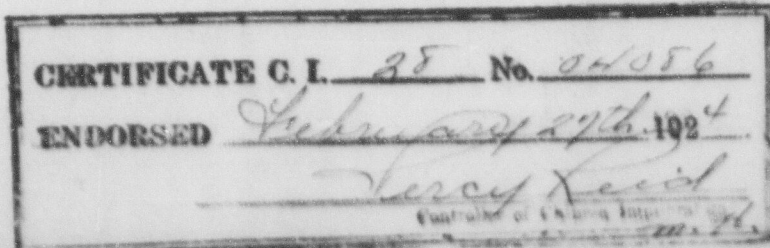 CERTIFICATE C. I. 28 No. 04086
ENDORSED February 27th 1924
Percy Reid
Controller of Chinese Immigration
m.h.